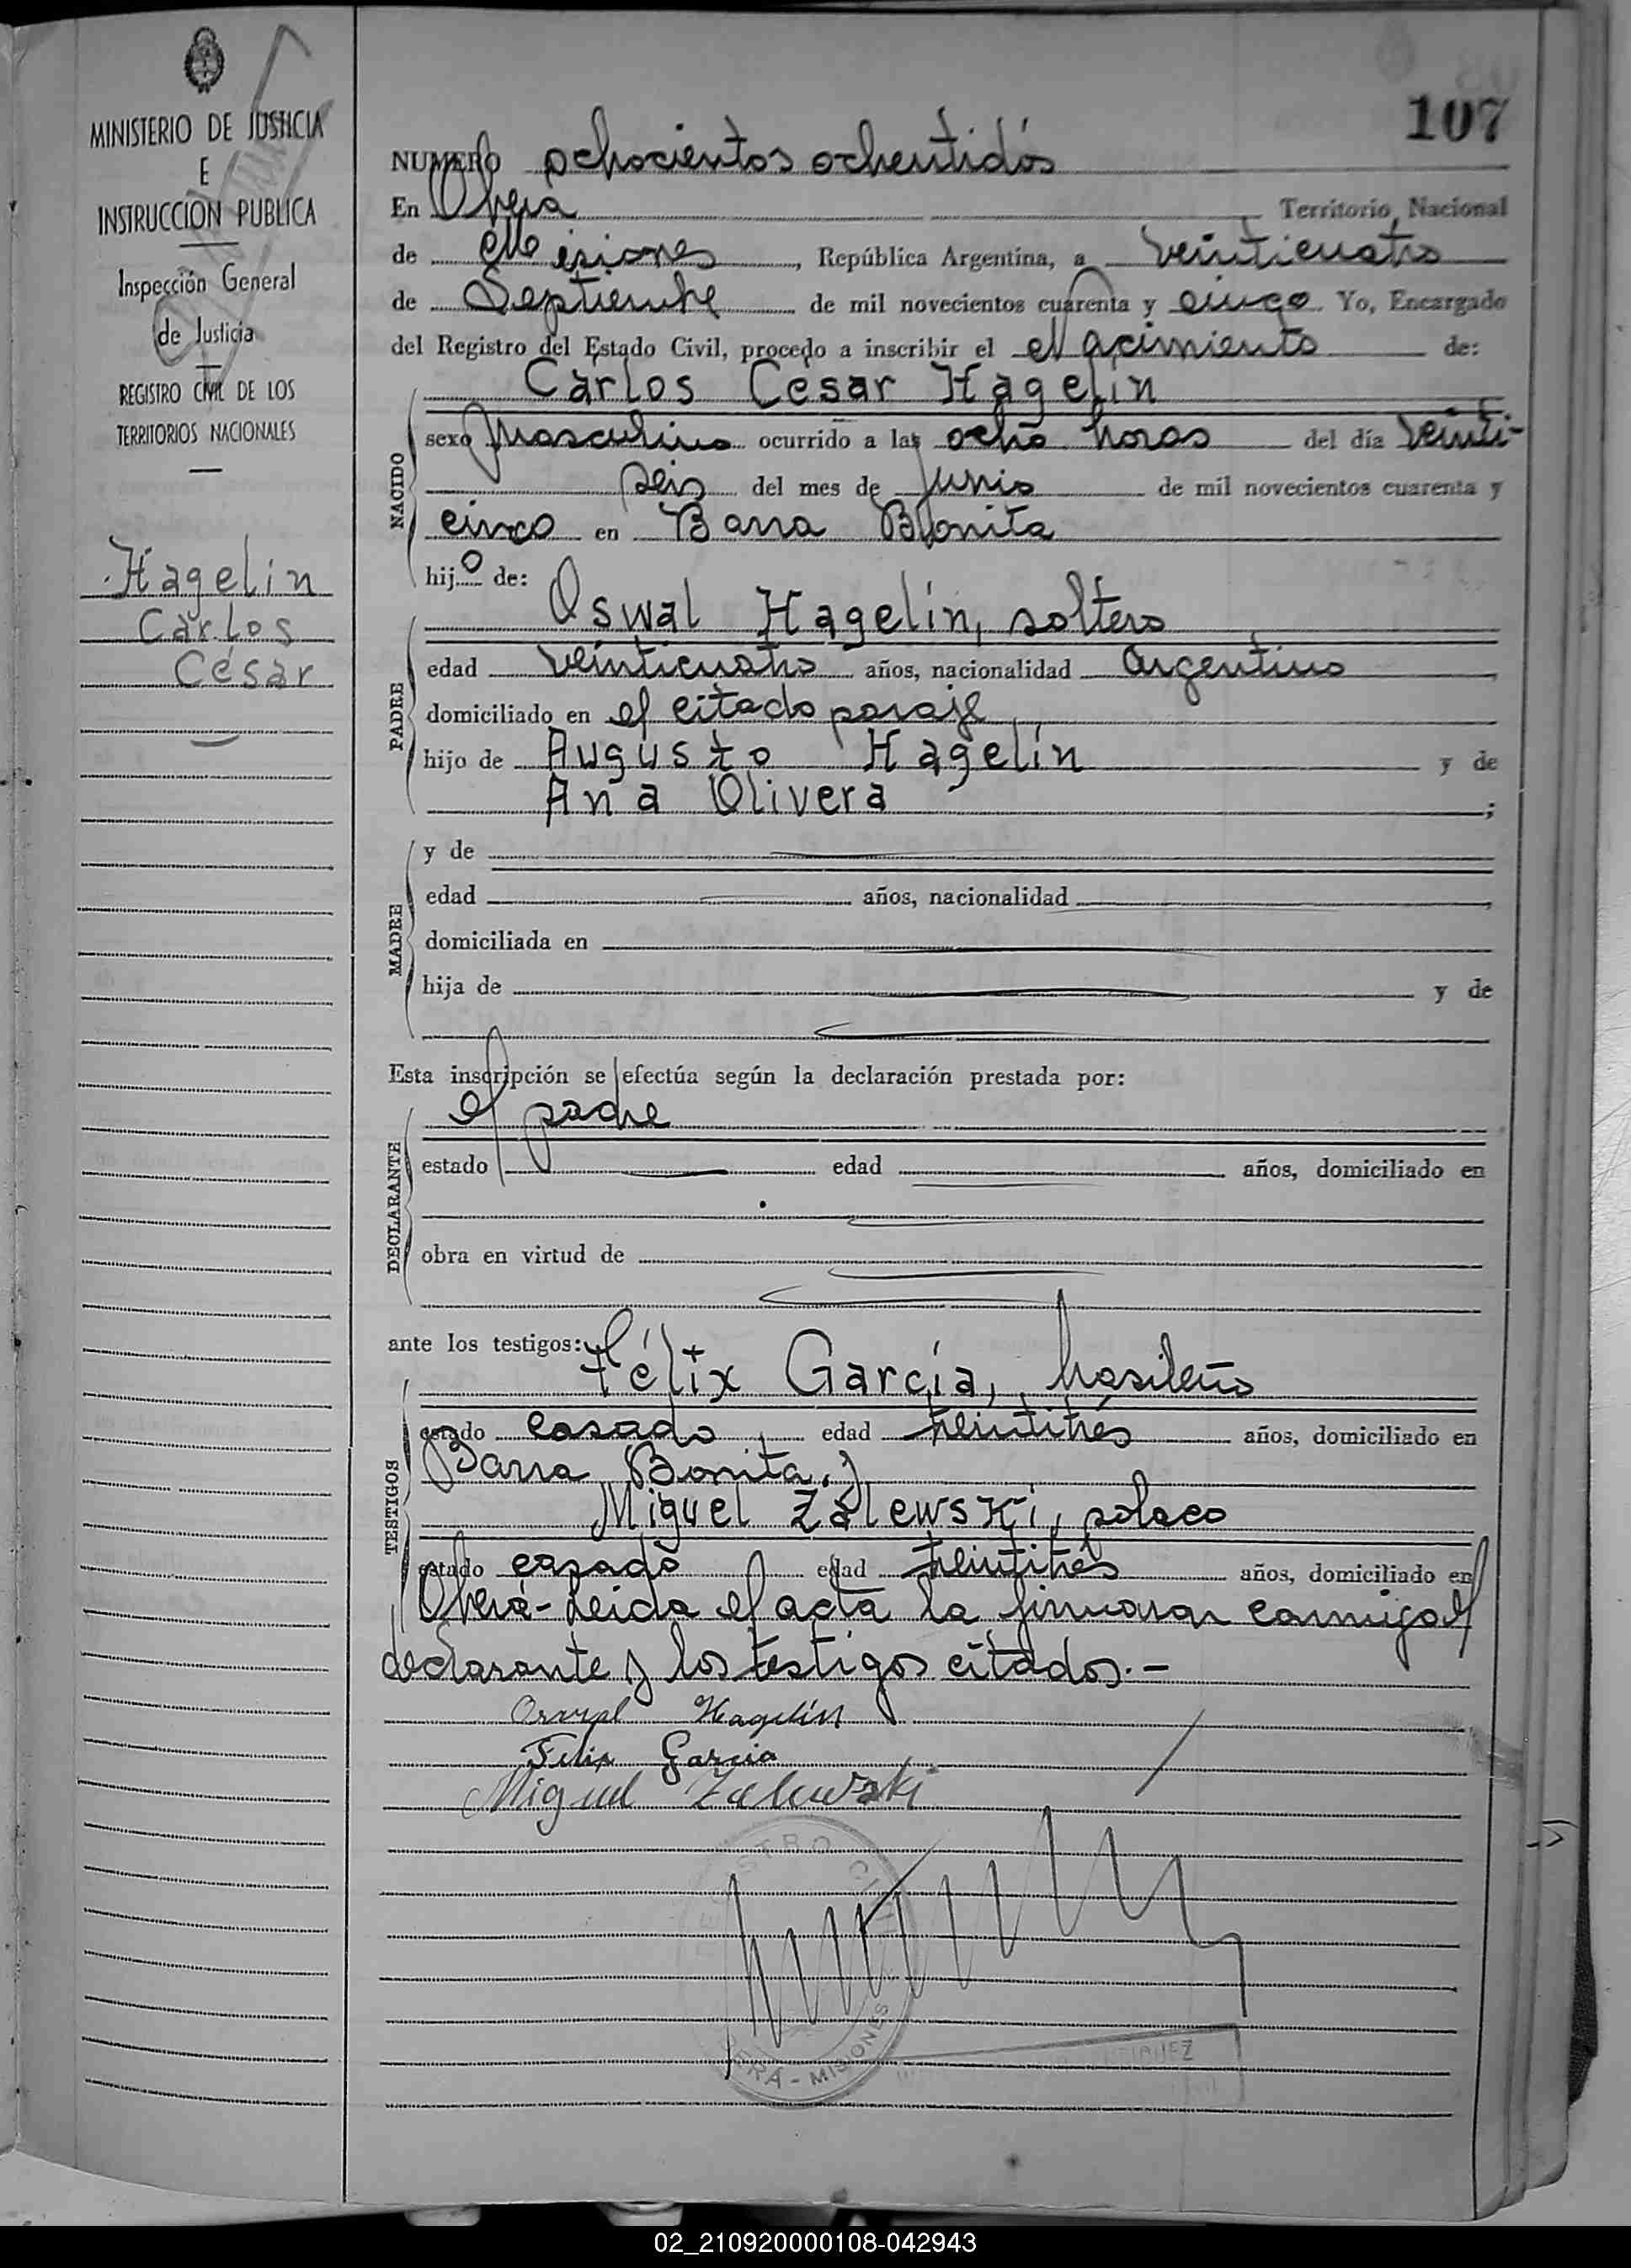 MINISTERIO DE JUSTICIA
E
INSTRUCCION PUBLICA
Inspección General
de Justicia
REGISTRO CIVIL DE LOS
TERRITORIOS NACIONALES
Hagelin
Carlos
César
107
NUMERO ochocientos ochentidós
En Oberá Territorio Nacional
de Misiones, República Argentina, a veinticuatro
de Septiembre de mil novecientos cuarenta y cinco. Yo, Encargado
del Registro del Estado Civil, procedo a inscribir el Nacimiento de:
Carlos César Hagelin
NACIDO
sexo Masculino ocurrido a las ocho horas del día veinti-
seis del mes de Junio de mil novecientos cuarenta y
cinco en Barra Bonita
hijo de:
Oswal Hagelín, soltero
PADRE
edad veinticuatro años, nacionalidad Argentino
domiciliado en el citado paraje,
hijo de Augusto Hagelín y de
Ana Olivera;
MADRE
y de
edad años, nacionalidad
domiciliada en
hija de y de
Esta inscripción se efectúa según la declaración prestada por:
el padre
DECLARANTE
estado edad años, domiciliado en
obra en virtud de
ante los testigos:
Félix García, brasileño
TESTIGOS
estado casado edad treintitrés años, domiciliado en
Barra Bonita, y
Miguel Zalewski, polaco
estado casado edad treintitrés años, domiciliado en
Oberá- Leida el acta la firmaron conmigo el
declarante y los testigos citados.-
Oswal Hagelín
Felix Garcia
Miguel Zalewski
REGISTRO CIVIL
OBERA - MISIONES
02_210920000108-042943